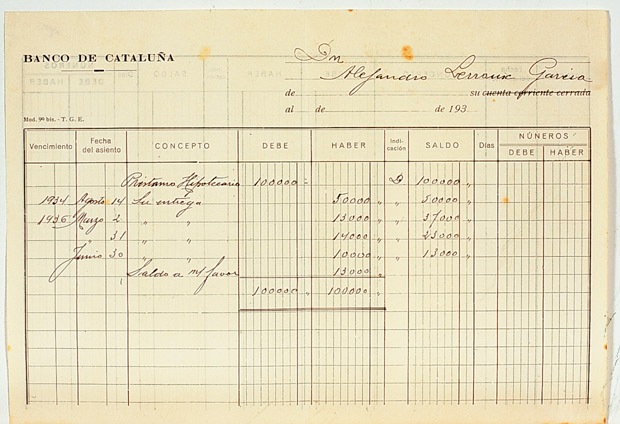 BANCO DE CATALUÑA
Dn
Alejandro Lerroux Garcia
de su cuenta corriente cerrada
al de de 193
Mod. 9º bis. - T. G. E.
Vencimiento Fecha del asiento CONCEPTO DEBE HABER Indicación SALDO Días NÚMEROS DEBE HABER
Préstamo Hipotecario 100000 D 100000 "
1934 Agosto 14 Su entrega 50000 " " 50000 "
1935 Marzo 2 " " 13000 " " 37000 "
" 31 " " 14000 " " 23000 "
Junio 30 " " 10000 " " 13000 "
Saldo a m/ favor 13000 "
100000 " 100000 "